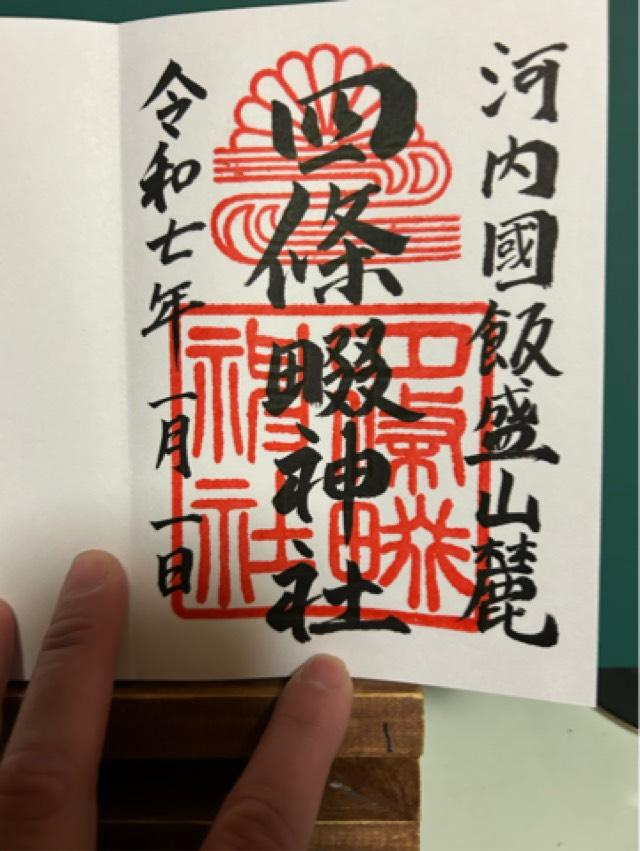 河内國飯盛山麓
四條畷神社
令和七年一月一日
四條畷
神社